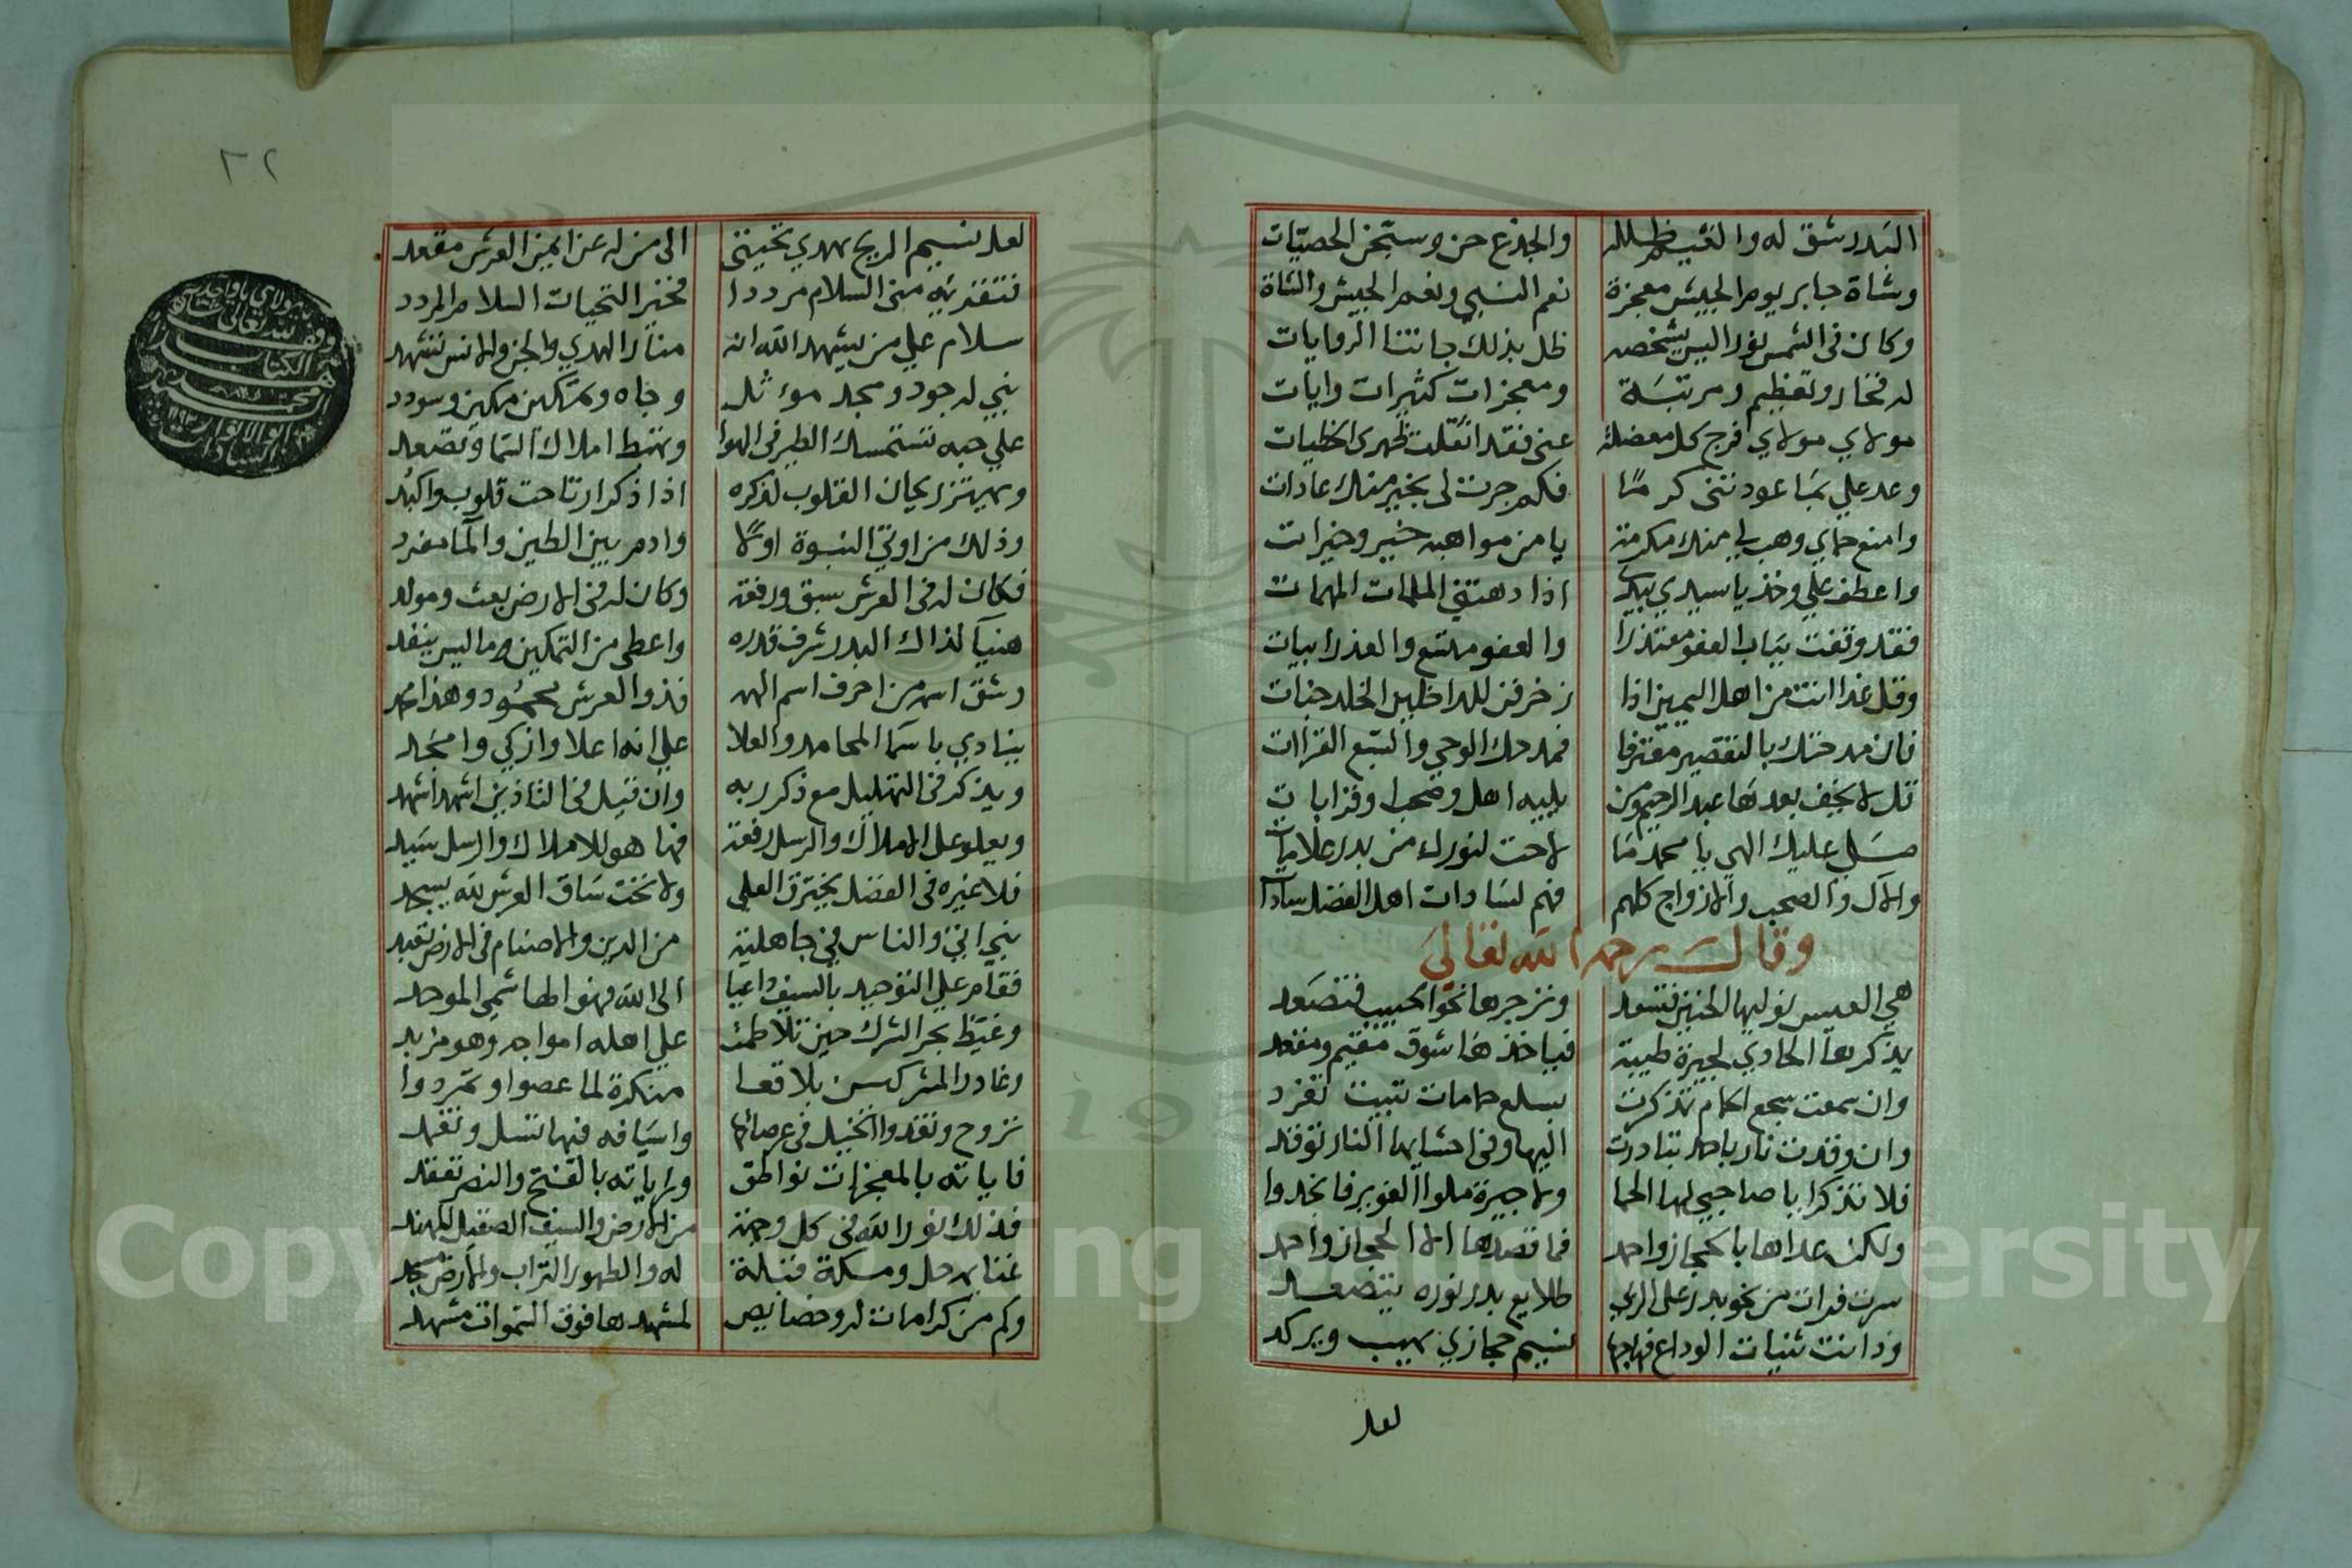 البدر شق له والغيم ظلله والجذع حن وسبحن الحصيات
وشاة جابر يوم الجيش معجزة نعم النبي ونعم الجيش والشاة
وكان في الشمس نورا ليس يشخصه ظل بذلك جاءتنا الروايات
له فخار وتعظيم ومرتبة ومعجزات كثيرات وايات
مولاي مولاي فرج كل معضلة عني فقد اثقلت ظهري الخطيات
وعد علي بما عودتني كرما فكم جرت لي بخير منك عادات
وامنع حماي وهب لي منك مكرمة يا من مواهبه خير وخيرات
واعطف علي وخذ يا سيدي بيدي اذا دهتني الملمات المهمات
فقد وقفت بباب العفو معتذرا والعفو متسع والعذر ابيات
وقل غدا انت من اهل اليمين اذا زخرفن للداخلين الخلد جنات
فان مدحتك بالتقصير معترفا فمدحك الوحي والسبع القراات
قل لا يخف بعدها عبد الرحيم ومن يليه اهل وصحب او قرابات
صلى عليك الهي يا محمد ما لاحت لنورك من بدر علامات
والآل والصحب والازواج كلهم فهم لسادات اهل الفضل سادات
وقال رحمه الله تعالى
هي العيس نوليها الحنين فتسعد ونزجرها نحو الحبيب فتصعد
يذكرها الحادي لجيرة طيبة فياخذها شوق مقيم ومقعد
وان سمعت سجع الحمام تذكرت بسلع حمامات تبيت تغرد
وان وقدت نار باحد تبادرت اليها وفي احشايها النار توقد
فلا تذكرا يا صاحبي لها الحما ولا جيرة ملوا الغوير فانجدوا
ولكن عداها بالحجاز واحد فما قصدها الا الحجاز واحد
سرت فرات من نحو بدر على الربى طلايع بدر نوره يتصعد
ودانت ثنيات الوداع فهاجها نسيم حجازي يهيب ويركد
لعل
٢٢
لعل نسيم الريح يهدي تحيتي الى من له عن ايمن العرش مقعد
فتقريه مني السلام مرددا فخير التحيات السلام المردد
سلام علي من يشهد الله انه منار الهدي والجن والانس تشهد
نبي له جود ومجد موثل وجاه وتمكين مكين وسودد
علي حبه تستمسك الطير في الهوا وتهبط املاك السما وتصعد
ويهتز ريحان القلوب لذكره اذا ذكر ارتاحت قلوب واكبد
وذلك من اوتي النبوة اولا وادم بين الطين والما مفرد
فكان له في العرش سبق ورفعة وكان له في الارض بعث ومولد
هنيا لذاك البدر شرف قدره واعطي من التمكين ما ليس ينفد
وشق اسمه من احرف اسم الهه فذو العرش محمود وهذا محمد
ينادي باسما المحامد والعلا علي انه اعلا وازكي وامجد
ويذكر في التهليل مع ذكر ربه وان قيل في التاذين اشهد اشهد
ويعلو على الاملاك والرسل رفعة فها هو للاملاك والرسل سيد
فلا غيره في الفضل يخترق العلي ولا تحت ساق العرش لله يسجد
نبي اتي والناس في جاهلية من الدين والاصنام في الارض تعبد
فقام علي التوحيد بالسيف داعيا الى الله فهو الهاشمي الموحد
وغيظ بحر الشرك حين تلاطمت علي اهله امواجه وهو مزبد
وغادر المشركين بلاقعا منكرة لما عصوا وتمردوا
تروح وتغدوا الخيل في عرصاتها واسيافه فيها تسل وتغمد
فاياته بالمعجزات نواطق وراياته بالفتح والنصر تعقد
فذلك نور الله في كل وجهة من الارض والسيف الصقيل المهند
غنايم حل ومسكة قبلة له والطهور التراب والارض مسجد
وكم من كرامات له وخصايص لمشهدها فوق السموات مشهد